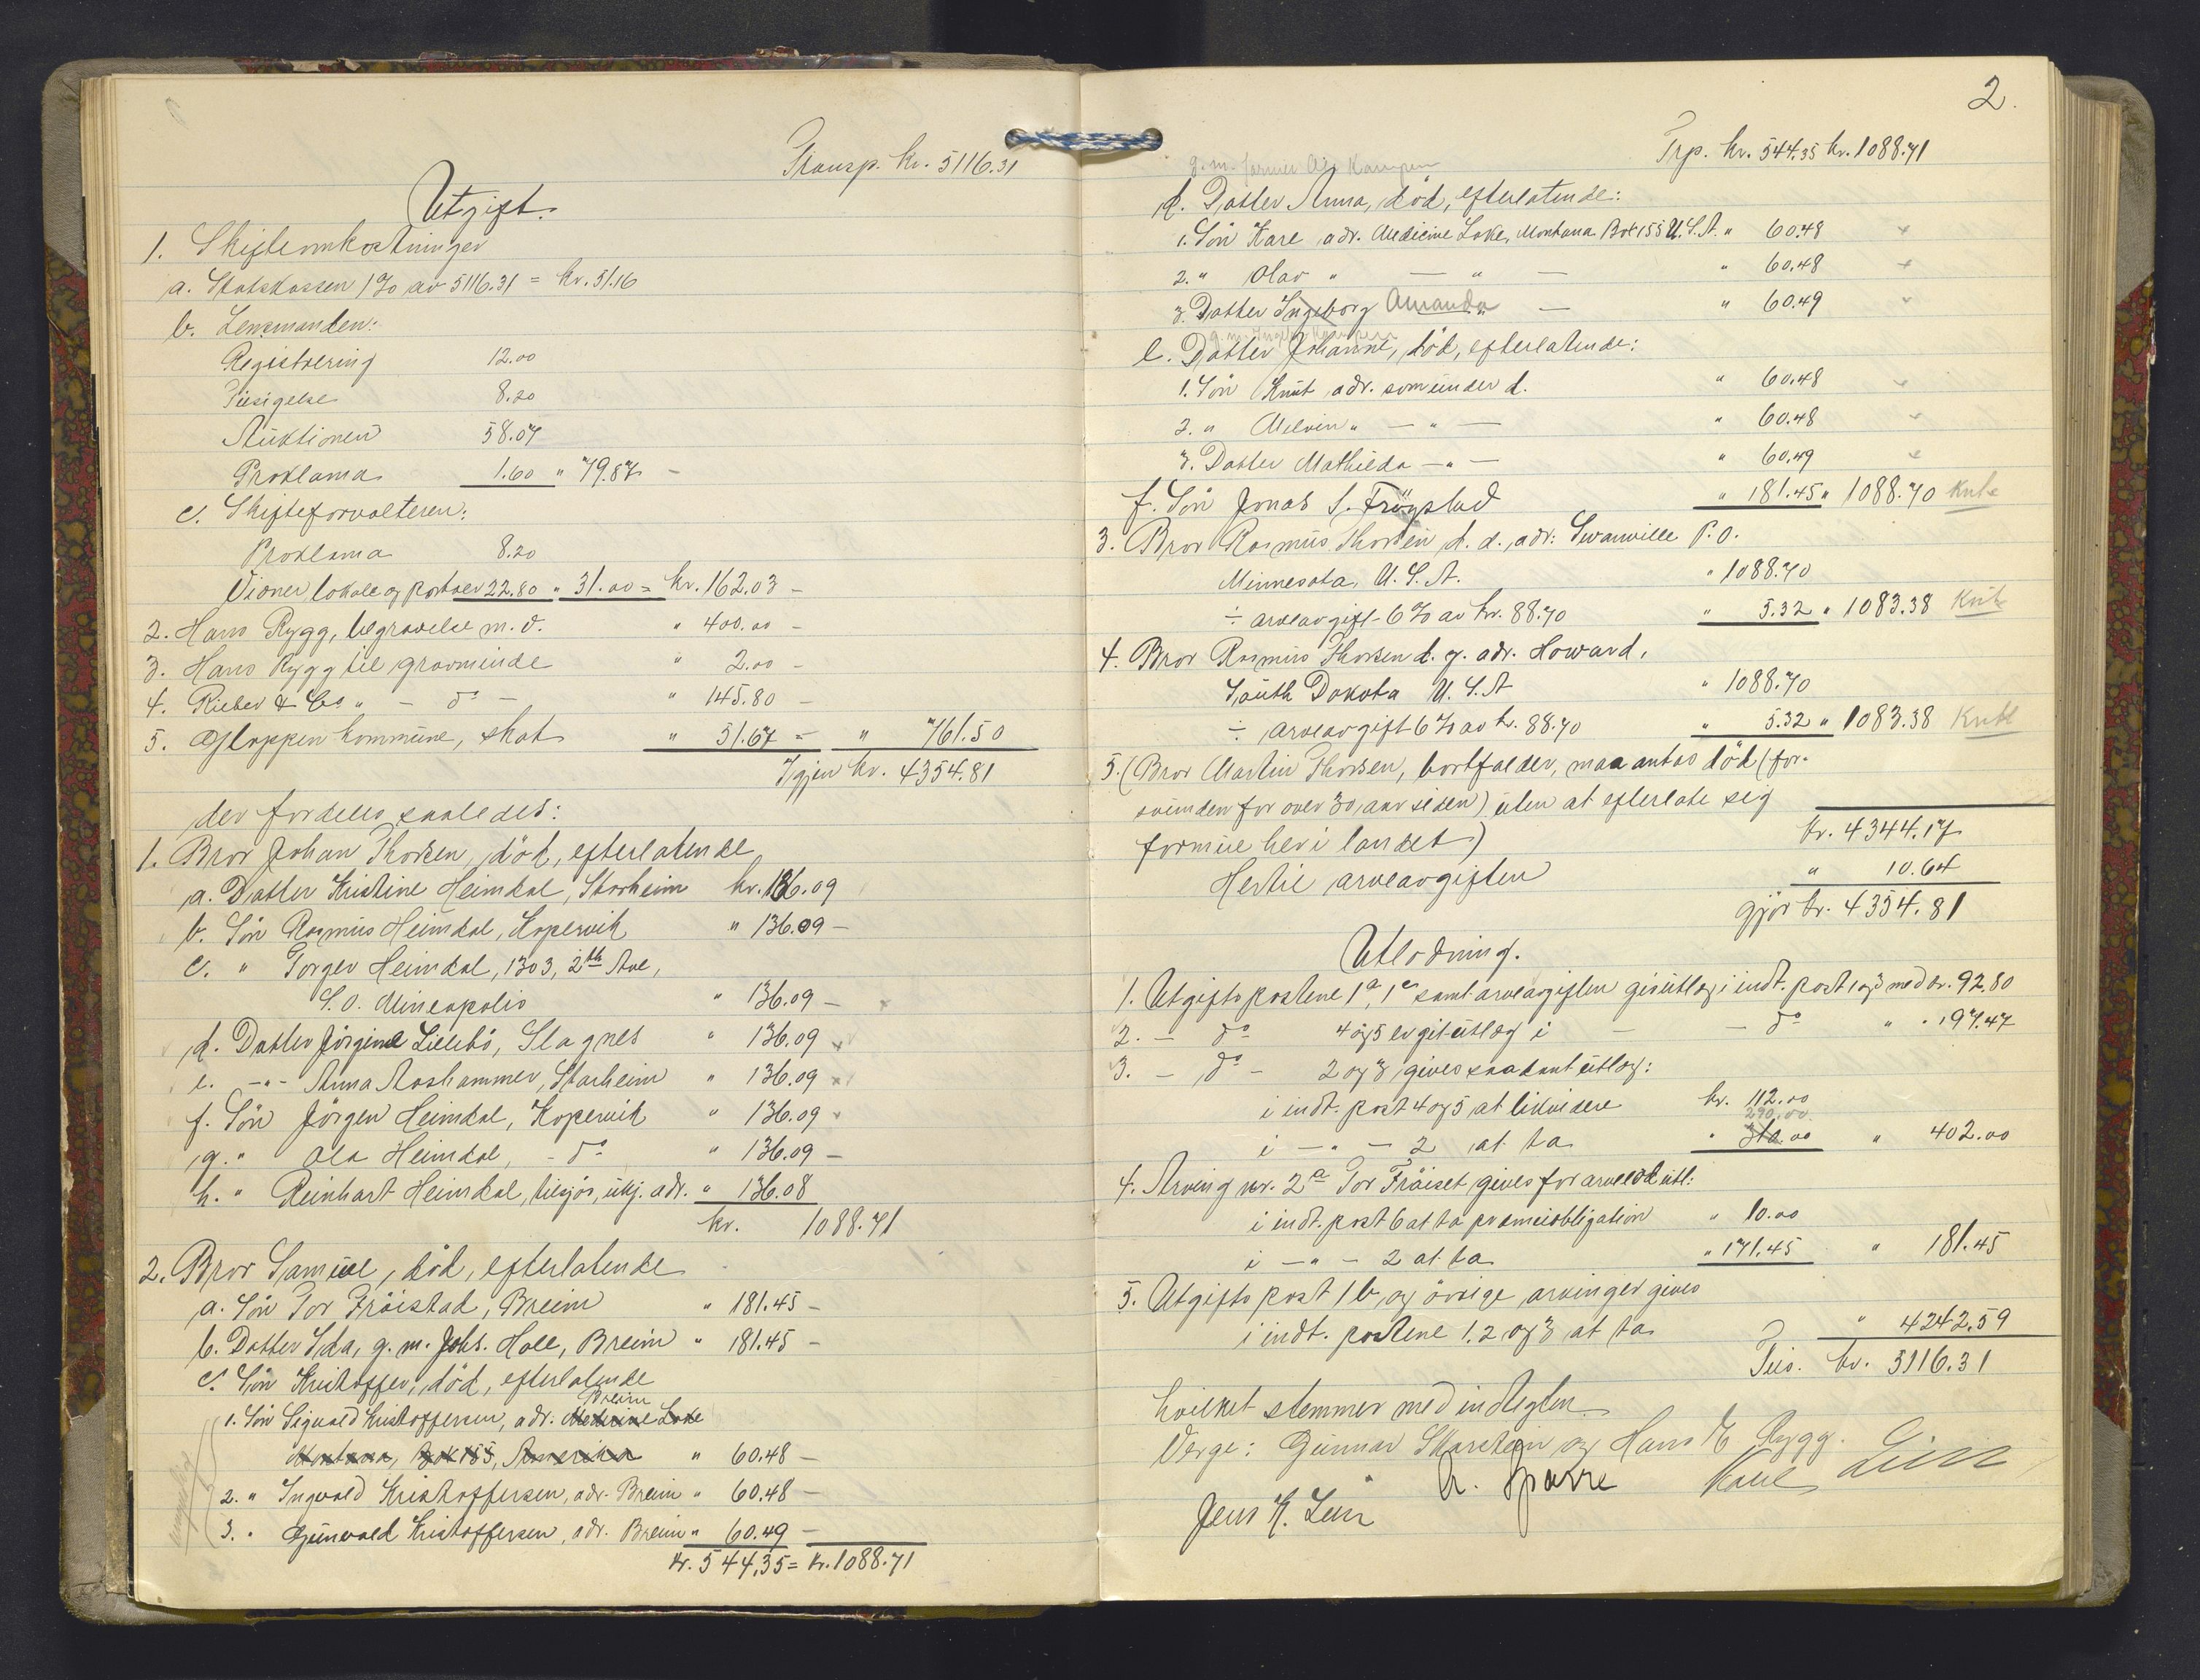 Transp. kr. 5116.31
Utgift.
1. Skifteomkostninger
a. Statskassen 1% av 5116.31 = kr. 51.16
b. Lensmanden:
Registrering 12.00
Tilsigelse 8.20
Auktionen 58.07
Proklama 1.60 " 79.87 -
c. Skifteforvalteren:
Proklama 8.20
Vioner lokale og portoer 22.80 " 31.00 = kr. 162.03 -
2. Hans Rygg, begravelse m.v. " 400.00 -
3. Hans Rygg til gravminde " 2.00 -
4. Rieber & Co " - do - " 145.80 -
5. Gloppen kommune, skat " 51.67 = " 761.50
Igjen kr. 4354.81
der fordeles saaledes:
1. Bror Johan Thorsen, död, efterlatende
a. Datter Kristine Heimdal, Starheim kr. 136.09
b. Sön Rasmus Heimdal, Kopervik " 136.09 -
c. " Torger Heimdal, 1303, 2th Ave,
S.O. Mineapolis " 136.09 -
d. Datter Jörgine Lillebö, Slagnes " 136.09
e. -"- Anna Aashammer, Starheim " 136.09
f. Sön Jörgen Heimdal, Kopervik " 136.09
g. " Ola Heimdal, - do " 136.09 -
h. " Reinhart Heimdal, tilsjös, ukj. adr. " 136.08
kr. 1088.71
2. Bror Samuel, död, efterlatende
a. Sön Tor Fröistad, Breim " 181.45 -
b. Datter Ida, g.m. Johs. Hole, Breim " 181.45 -
c. Sön Kristoffer, död, efterlatende
Breim
1. Sön Sigvald Kristoffersen, adr. Medicine Lake
Montana, Box 155, Amerika " 60.48 -
2. " Ingvald Kristoffersen, adr. Breim " 60.48 -
3. " Gunvald Kristoffersen, adr. Breim " 60.49 -
kr. 544.35 = kr. 1088.71
2.
Trp. kr. 544.35 kr. 1088.71
g.m. farmer Ole Kampen
d. Datter Anna, död, efterlatende:
1. Sön Kare adr. Medicine Lake, Montana Box 155 U.S.A. " 60.48
2. " Olav " — " — " 60.48
3. Datter Ingeborg Amanda " — " 60.49
e. Datter Johanne, död, efterlatende:
1. Sön Knut adr. som under d. " 60.48
2. " Melvin " — " — " 60.48
3. Datter Mathilda — " — " 60.49
f. Sön Jonas S. Fröystad " 181.45 " 1088.70
3. Bror Rasmus Thorsen d.e. adr: Swanville P.O.
Minnesota, U.S.A. " 1088.70
÷ arveavgift 6% av kr. 88.70 " 5.32 " 1083.38
4. Bror Rasmus Thorsen d.y. adr. Howard,
South Dakota U.S.A " 1088.70
÷ arveavgift 6% av kr. 88.70 " 5.32 " 1083.38
5. (Bror Martin Thorsen, bortfalder, maa antas död (for-
svunden for over 30 aar siden) uten at efterlate sig
formue her i landet) kr. 4344.17
Hertil arveavgiften " 10.64
gjör kr. 4354.81
Utlodning.
1. Utgiftspostene 1a, 1c samt arveavgiften gis utlæg i indt. post 1 og 3 med kr. 92.80
2. — do 4 og 5 er git utlæg i — — do " " 197.47
3. — do - 2 og 3 gives saadant utlæg:
i indt. post 4 og 5 at likvidere kr. 112.00
290.00
i — " — 2 at ta " 310.00 " 402.00
4. Arving nr. 2a Tor Fröiset gives for arvelod utl:
i indt. post 6 at ta præmieobligation " 10.00
i — " — 2 at ta " 171.45 " 181.45
5. Utgifts post 1b og övrige arvinger gives
i indt. postene 1, 2 og 3 at ta " 4242.59
Tils. kr. 5116.31
hvilket stemmer med indtegten.
Verge: Gunnar Skarstein og Hans E Rygg.
A. Sparre